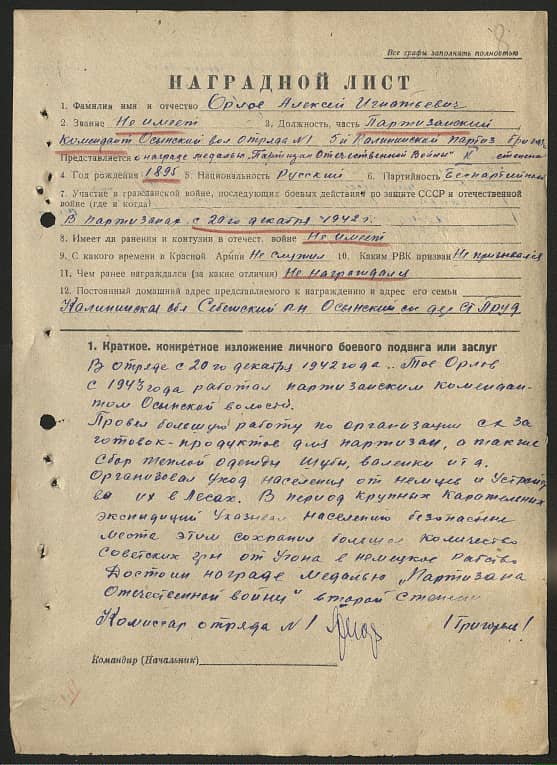 Все графы заполнять полностью
НАГРАДНОЙ ЛИСТ
1. Фамилия имя и отчество Орлов Алексей Игнатьевич
2. Звание Не имеет 3. Должность, часть Партизанский
Комендант Осынской вол отряда №1 5й Калининской партиз
Представляется о награде медаль "Партизан Отечественной Войны" степени
4. Год рождения 1895 5. Национальность Русский 6. Партийность Беспартийный
7. Участие в гражданской войне, последующих боевых действиях по защите СССР и отечественной
войне (где и когда)
В партизанах с 20го декабря 1942г.
8. Имеет ли ранения и контузии в отечест. войне Не имеет
9. С какого времени в Красной Армии Не служил 10. Каким РВК призван Не призвался
11. Чем ранее награждался (за какие отличия) Не награждался
12. Постоянный домашний адрес представляемого к награждению и адрес его семьи
Калининская обл Себежский р.н. Осынский сн дер Ст Пруд
1. Краткое, конкретное изложение личного боевого подвига или заслуг
В отряде с 20го декабря 1942 года .. Тов Орлов
с 1943 года работал партизанским комендан-
том Осынской волости.
Провел большую работу по организации за
готовок-продуктов для партизан, а также
сбор теплой одежды шубы, валенки и т д.
Организовал уход населения от немцев и устройс
во их в лесах. В период крупных карательных
экспидиций указывал населению безопасные
места этим сохранил большое количество
советских грн от угона в немецкое рабство
Достоин награде медалью „Партизана
Отечественной войны" второй степени
Комиссар отряда №1 / Григорьев /
Командир (Начальник)